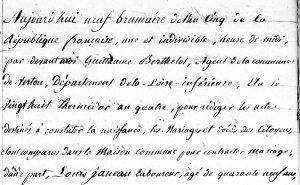 Aujourd'hui neuf brumaire de l'an Cinq de la
République française, une et indivisible, heure de midi,
par devant moi Guillaume Berthelot, Agent de la commune
de Vertou, Département de la Loire-inférieure, Elu le
vingt huit thermidor an quatre, pour rédiger les actes
destinés à constater la naissance, les Mariages et décès des Citoyens,
sont comparus dans la Maison Commune pour contracter mariage,
d'une part, Louis janeau laboureur, âgé de quarante neuf ans,